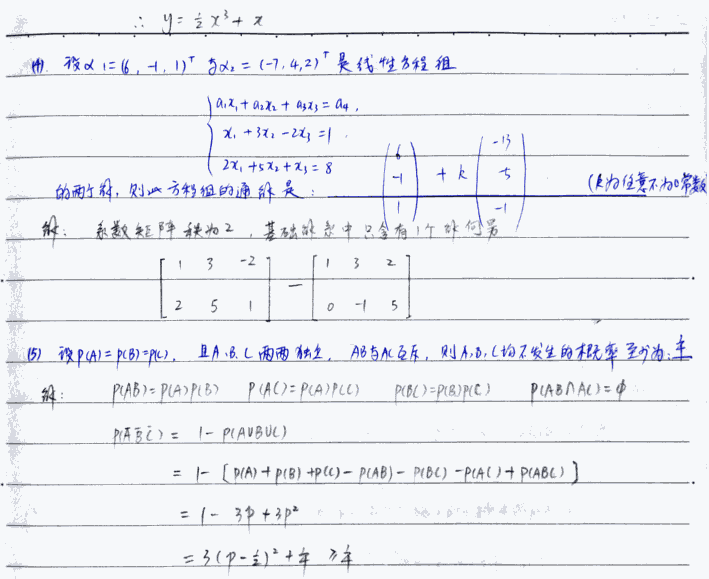 ∴ y = ½x³ + x
(4) 设α1=(6, -1, 1)ᵀ 与α₂ = (-7, 4, 2)ᵀ 是线性方程组
a₁x₁ + a₂x₂ + a₃x₃ = a₄,
x₁ + 3x₂ - 2x₃ = 1
2x₁ + 5x₂ + x₃ = 8
的两个解, 则此方程组的通解是: (6 -1 1) + k (-13 5 -1) (k为任意不为0常数
解: 系数矩阵秩为2, 基础解系中只含有1个解向量
[1 3 -2 2 5 1] — [1 3 2 0 -1 5]
(5) 设P(A)=P(B)=P(C), 且A.B.C两两独立, AB与AC互斥, 则A,B,C均不发生的概率至少为: ¼
解: P(AB)=P(A)P(B) P(AC)=P(A)P(C) P(BC)=P(B)P(C) P(AB∩AC)=ϕ
P(A̅ B̅ C̅) = 1 - P(A∪B∪C)
= 1 - [P(A)+P(B)+P(C)-P(AB)-P(BC)-P(AC)+P(ABC)]
= 1 - 3p + 3p²
= 3(p-½)² + ¼ ≥ ¼